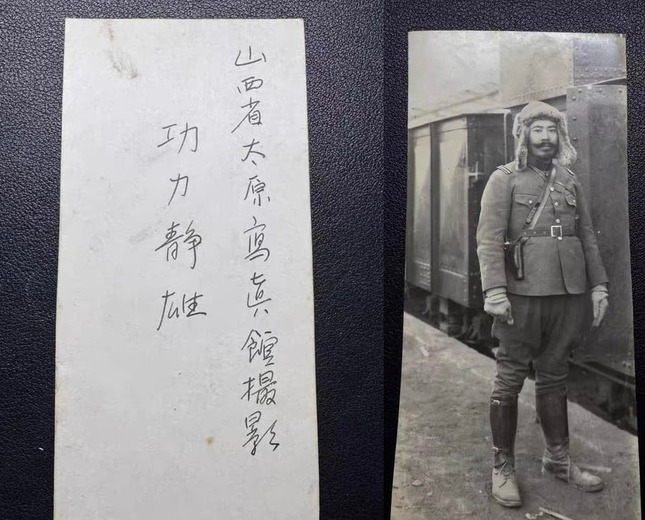 山西省太原寫眞館撮影
功力靜雄